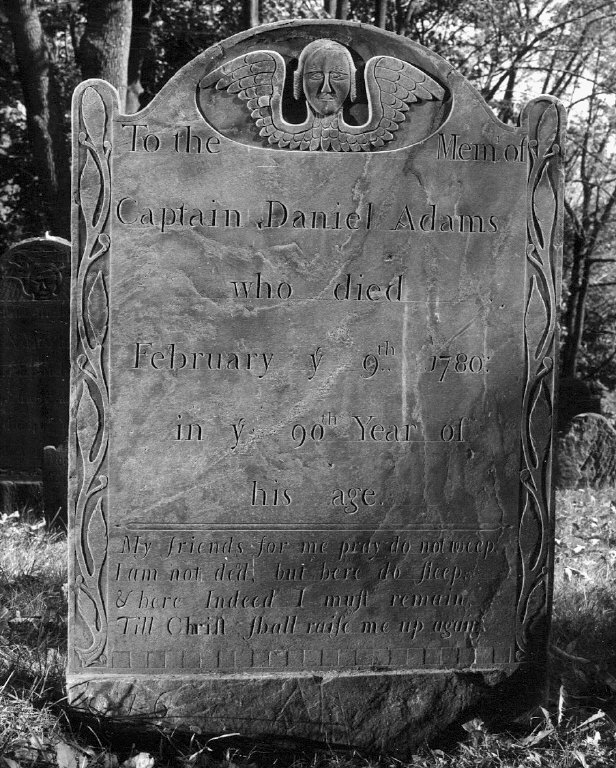 To the Mem: of
Captain Daniel Adams
who died
February yͤ 9th. 1780:
in yͤ 90th Year of
his age.
My friends for me pray do not weep
I am not ded, but here do ſleep
& here Indeed I muſt remain,
Till Chriſt ſhall raiſe me up again.